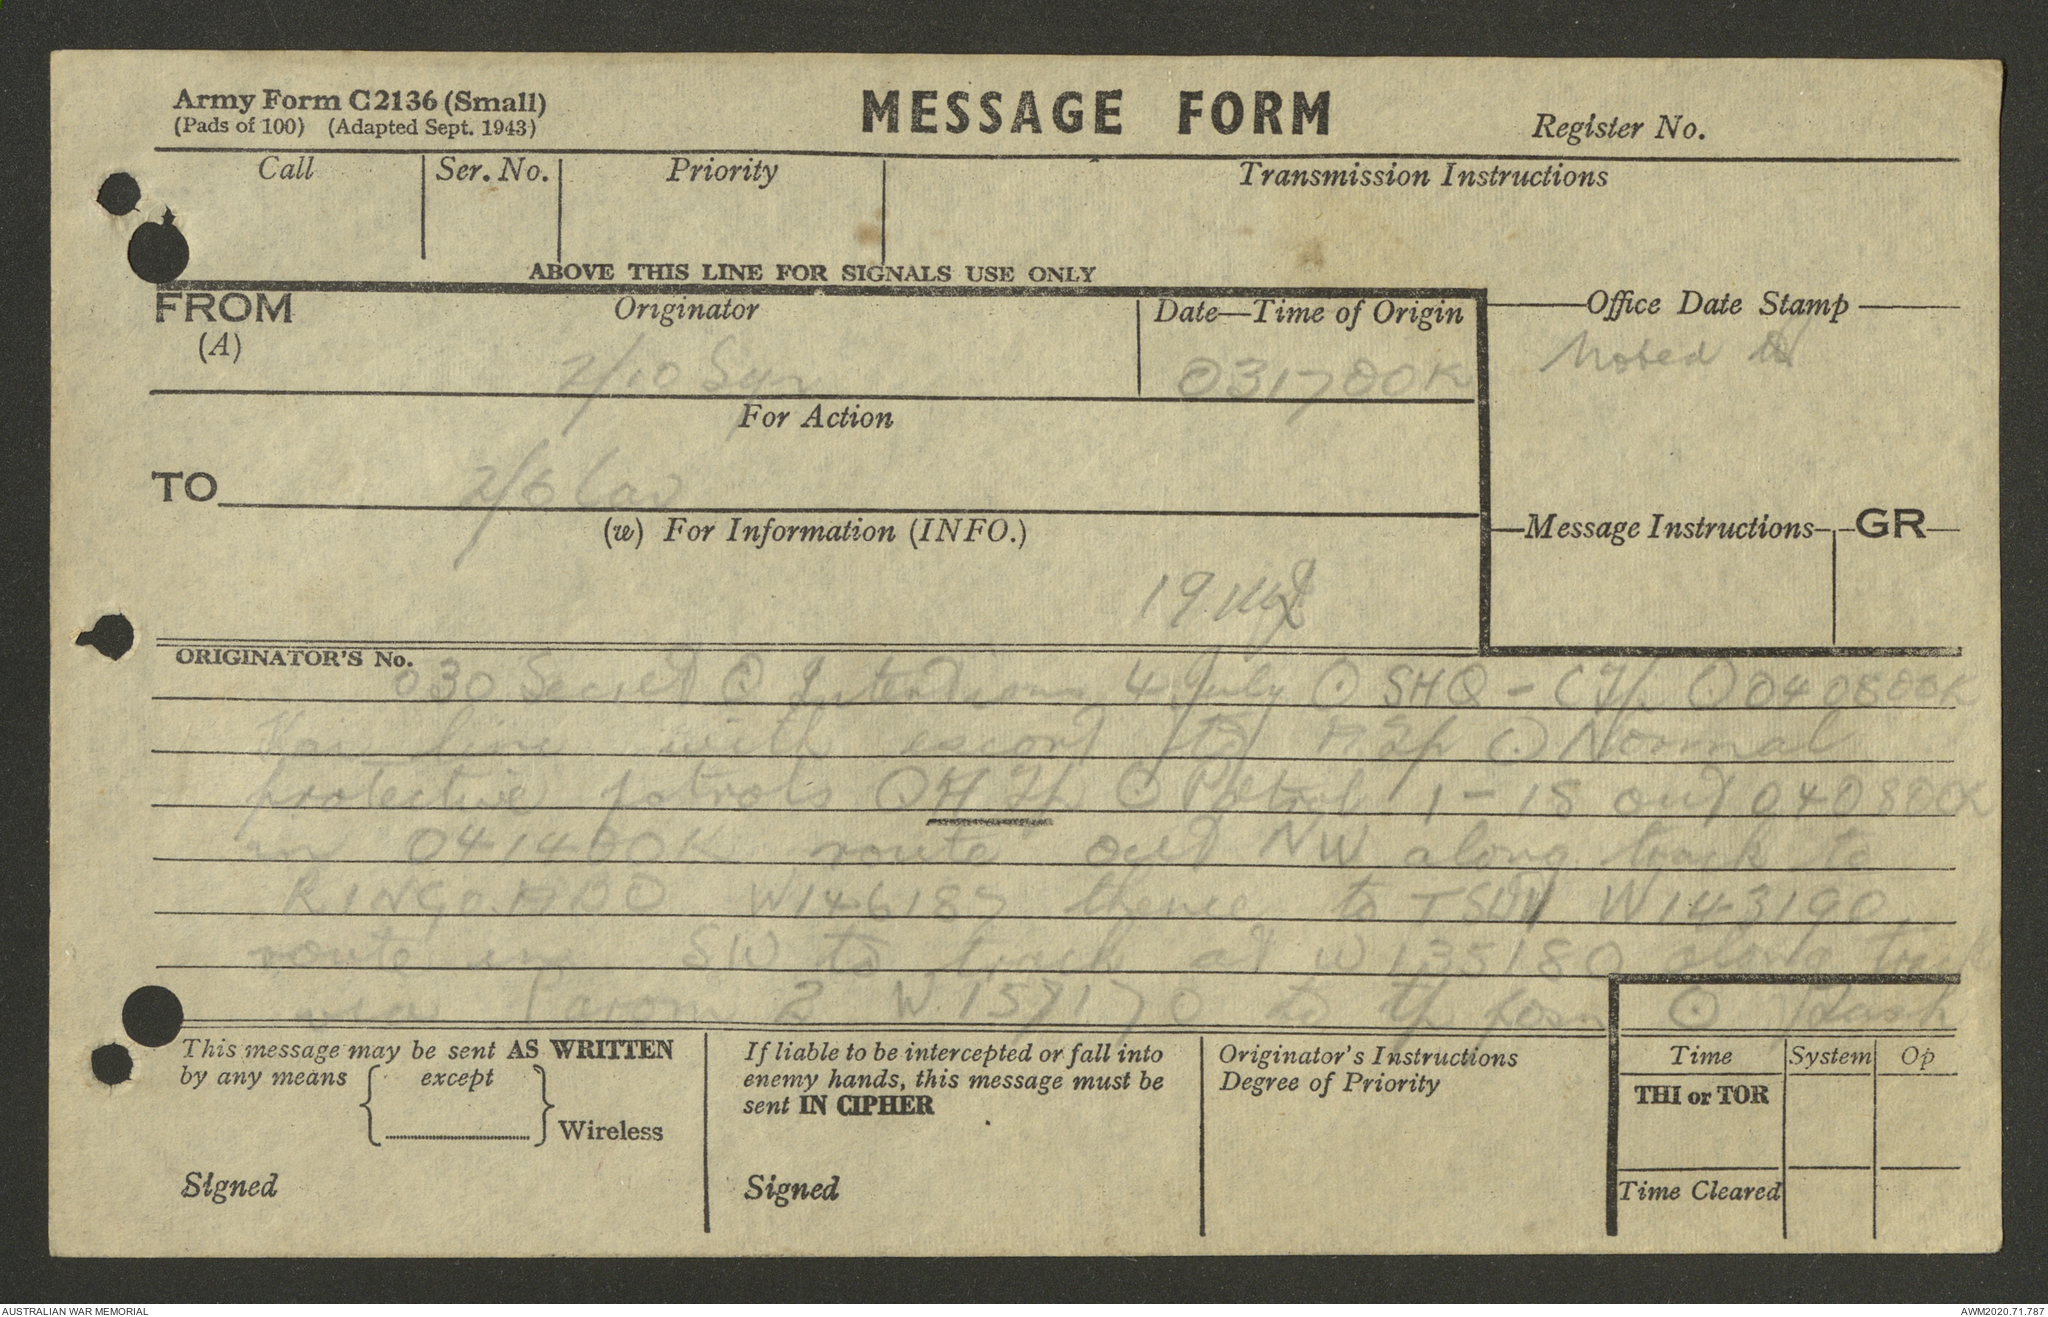 Army Form C2136 (Small)
(Pads of 100) (Adapted Sept. 1943)
MESSAGE FORM
Register No.
Call
Ser. No.
Priority
Transmission Instructions
ABOVE THIS LINE FOR SIGNALS USE ONLY
FROM
(A)
Originator
Date—Time of Origin
Office Date Stamp
2/10 Sqn
031700K
Noted
For Action
TO
2/6 Cav
(w) For Information (INFO.)
Message Instructions
GR
19
ORIGINATOR'S No.
030 Secret ⊙ Intentions 4 July ⊙ SHQ - C Tp ⊙ 040800K
line with escort to Tp ⊙ Normal
protective patrols ⊙ H Tp ⊙ Patrol 1-15 out 040800K
in 041400K route out NW along track to
W146187 thence to W143190
route in SW to track at W135180 along track
via Parom 2 W157170 to tp posn ⊙
This message may be sent AS WRITTEN
by any means except
Wireless
Signed
If liable to be intercepted or fall into
enemy hands, this message must be
sent IN CIPHER
Signed
Originator's Instructions
Degree of Priority
Time
System
Op
THI or TOR
Time Cleared
AUSTRALIAN WAR MEMORIAL
AWM2020.71.787